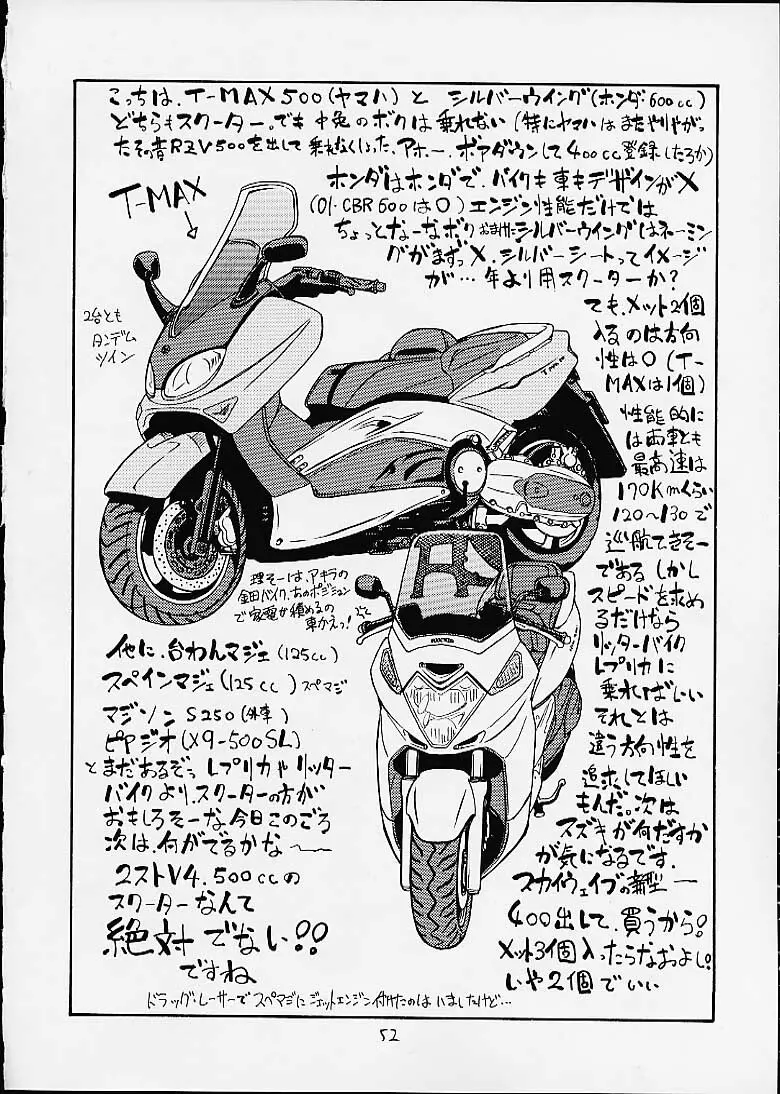 こっちは、T-MAX500(ヤマハ)と シルバーウイング(ホンダ・600cc)
どちらもスクーター。でも中免のボクは乗れない(特にヤマハはまたやりやがっ
たその昔RZV500を出して乗れなくしちった、アホー、ボアダウンして400cc登録したろか)
T-MAX
ホンダはホンダで、バイクも車もデザインが×
(01・CBR600は○)エンジン性能だけでは
ちょっとなーなボク おまけにシルバーウイングはネーミン
グがまずっ×、シルバーシートってイメージ
が…年より用スクーターか?
2台とも
タンデム
ツイン
でも、メット2個
入るのは方向
性は○(T-
MAXは1個)
性能的に
は両車とも
最高速は
170Kmくらい
120〜130で
巡航できそー
である しかし
スピードを求め
るだけなら
リッターバイク
レプリカに
乗ればいい
それとは
違う方向性を
追求してほしい
もんだ。次は
スズキが何だすか
が気になるです、
スカイウェイブの新型ー
400出して、買うから!
メット3個入ったらなおよし!
いや2個でいい
理そーは、アキラの
金田バイク、あのポジション
で家電が積めるの
車かえっ!
他に、台わんマジェ(125cc)
スペインマジェ(125cc)スペマジ
マジソンS250(外車)
ピヤジオ(X9-500SL)
とまだあるぞっ レプリカやリッター
バイクより、スクーターの方が
おもしろそーな、今日このごろ
次は、何がでるかな〜
2ストV4、500ccの
スクーターなんて
絶対でない!!
ですね
ドラッグ・レーサーでスペマジにジェットエンジン付けたのはいましたけど…
52